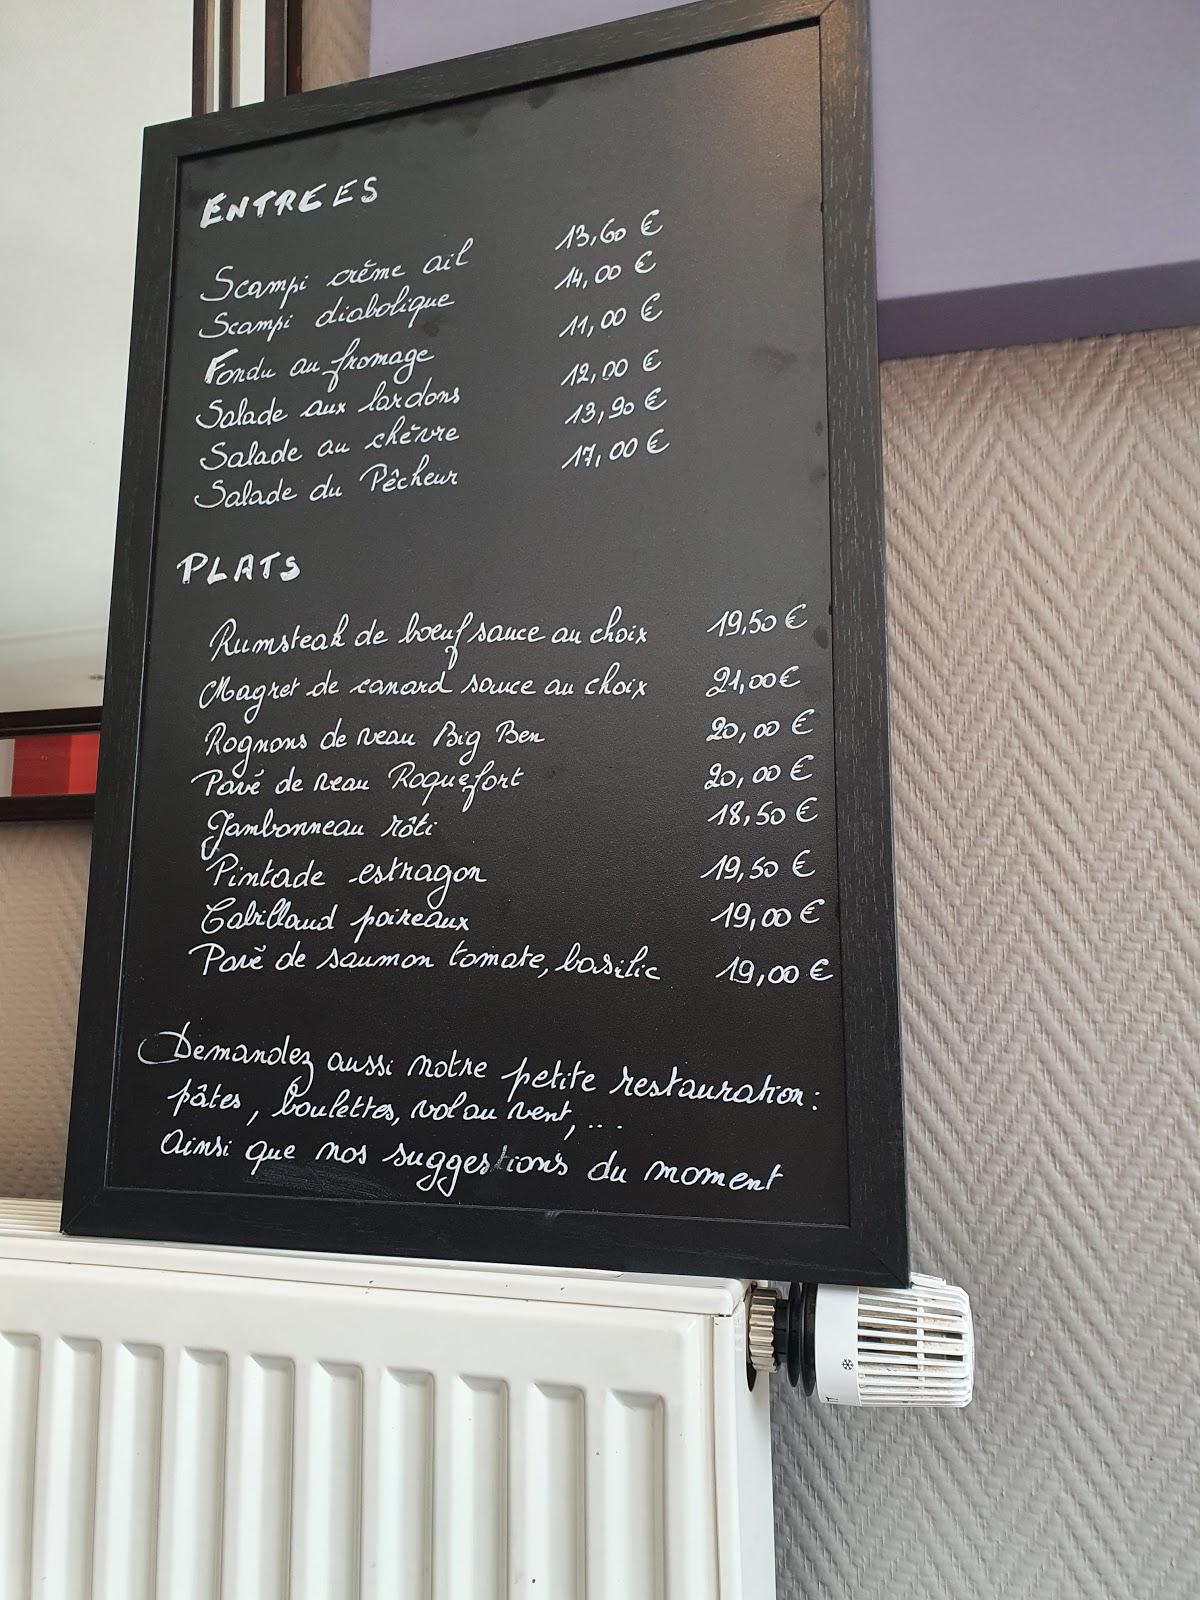 ENTREES
Scampi crème ail 13,60 €
Scampi diabolique 14,00 €
Fondu au fromage 11,00 €
Salade aux lardons 12,00 €
Salade au chèvre 13,90 €
Salade du Pêcheur 17,00 €
PLATS
Rumsteak de boeuf sauce au choix 19,50 €
Magret de canard sauce au choix 21,00 €
Rognons de veau Big Ben 20,00 €
Pavé de veau Roquefort 20,00 €
Jambonneau rôti 18,50 €
Pintade estragon 19,50 €
Cabillaud poireaux 19,00 €
Pavé de saumon tomate, basilic 19,00 €
Demandez aussi notre petite restauration :
pâtes, boulettes, vol au vent, ...
Ainsi que nos suggestions du moment